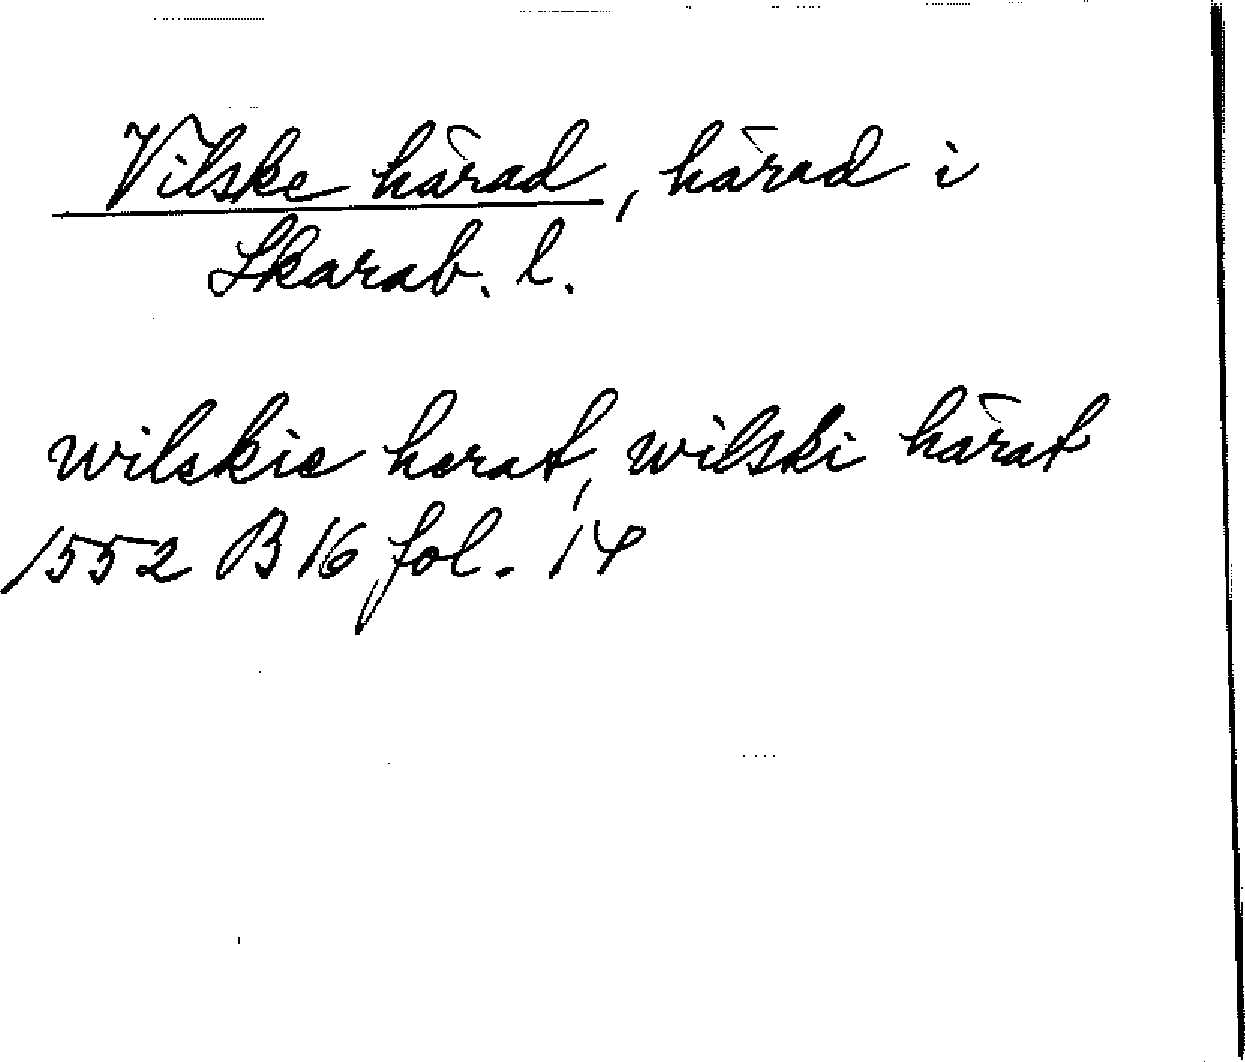 Vilske härad, härad i
Skarab. l.
wilskie herat, wilski härat
1552 B 16 fol. 14